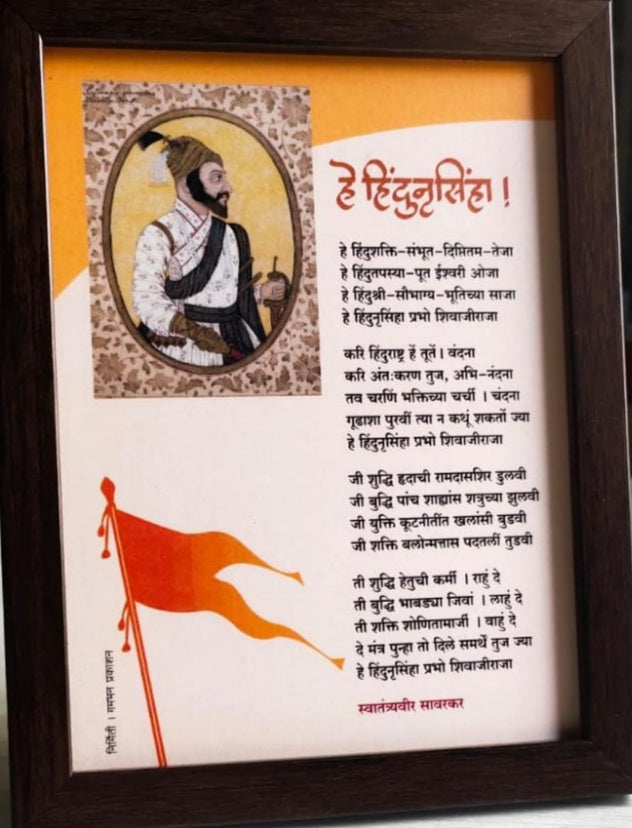 हे हिंदुनृसिंहा !
हे हिंदुशक्ति-संभूत-दिप्तितम-तेजा
हे हिंदुतपस्या-पूत ईश्वरी ओजा
हे हिंदुश्री-सौभाग्य-भूतिच्या साजा
हे हिंदुनृसिंहा प्रभो शिवाजीराजा
करि हिंदुराष्ट्र हें तूतें । वंदना
करि अंतःकरण तुज, अभि-नंदना
तव चरणिं भक्तिच्या चर्ची । चंदना
गूढाशा पुरवीं त्या न कथूं शकतों ज्या
हे हिंदुनृसिंहा प्रभो शिवाजीराजा
जी शुद्धि हृदाची रामदासशिर डुलवी
जी बुद्धि पांच शाह्यांस शत्रुच्या झुलवी
जी युक्ति कूटनीतींत खलांसी बुडवी
जी शक्ति बलोन्मत्तास पदतलीं तुडवी
ती शुद्धि हेतुची कर्मी । राहुं दे
ती बुद्धि भाबड्या जिवां । लाहुं दे
ती शक्ति शोणितामाजीं । वाहुं दे
दे मंत्र पुन्हा तो दिले समर्थें तुज ज्या
हे हिंदुनृसिंहा प्रभो शिवाजीराजा
स्वातंत्र्यवीर सावरकर
निर्मिती । गमभन प्रकाशन